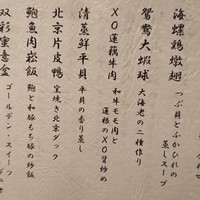 海螺鶏燉翅
つぶ貝とふかひれの
蒸しスープ
鴛鴦大蝦球
大海老の二種作り
XO蓮藕牛肉
和牛モモ肉と
蓮根のXO醤炒め
清蒸鮮平貝
平貝の香り蒸し
北京片皮鴨
窯焼き北京ダック
鮑魚肉崧飯
鮑と和豚もち豚の炒飯
双彩蜜意盒
ゴールデン・スイーツ